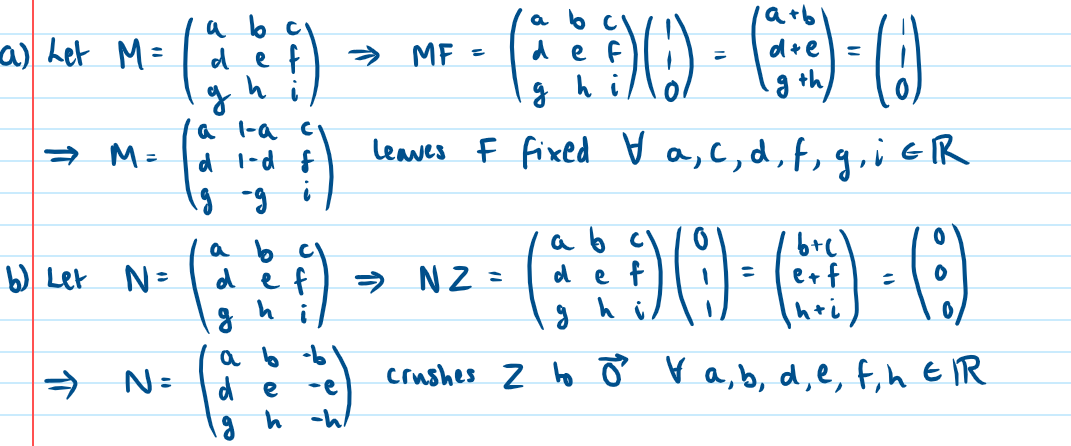 a) Let M = (a b c; d e f; g h i) ⇒ MF = (a b c; d e f; g h i)(1; 1; 0) = (a+b; d+e; g+h) = (1; 1; 0)
⇒ M = (a 1-a c; d 1-d f; g -g i) leaves F fixed ∀ a, c, d, f, g, i ∈ ℝ
b) Let N = (a b c; d e f; g h i) ⇒ NZ = (a b c; d e f; g h i)(0; 1; 1) = (b+c; e+f; h+i) = (0; 0; 0)
⇒ N = (a b -b; d e -e; g h -h) crushes Z to 0⃗ ∀ a, b, d, e, f, h ∈ ℝ